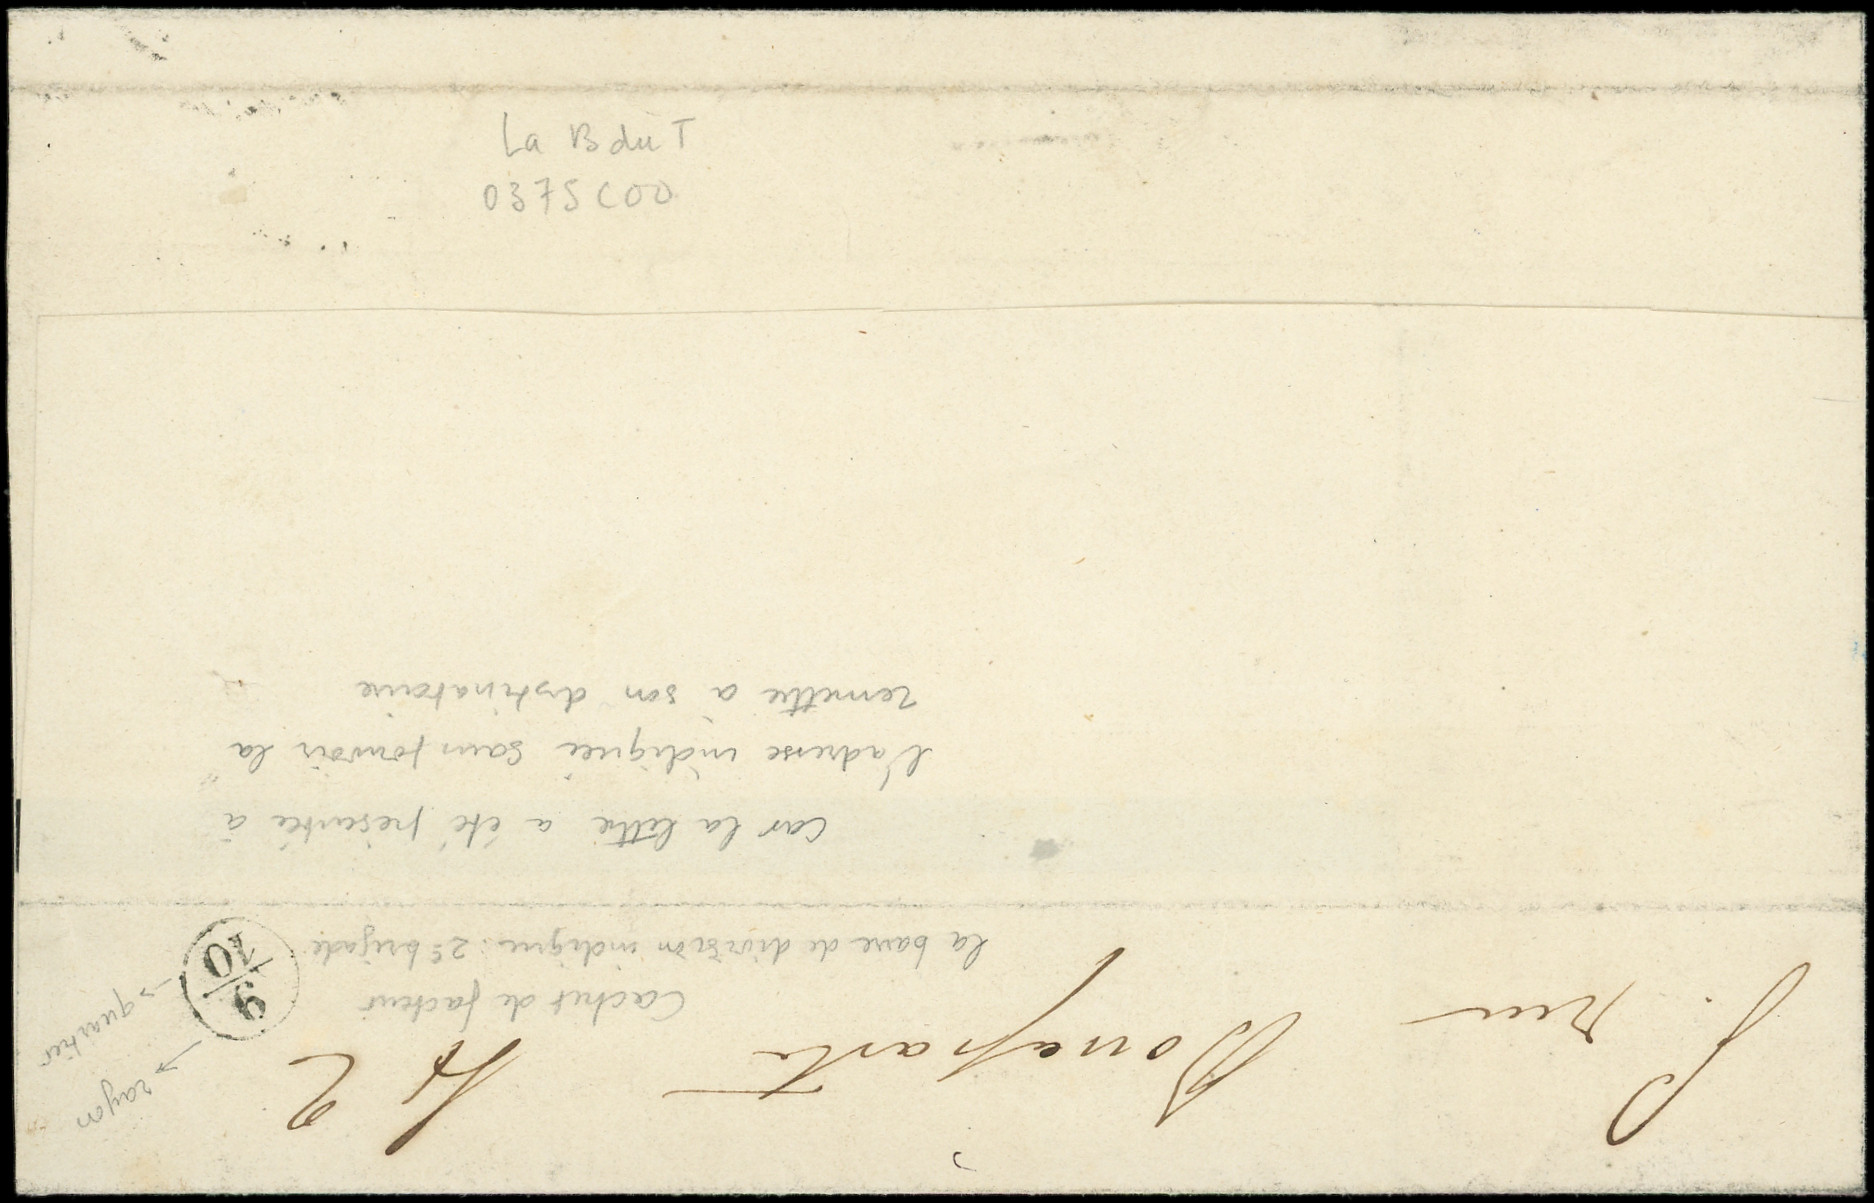 La B du T
0375 COD
J. rue Bonaparte N° 2
Cachet de facteur
9
10
→ rayon
→ quartier
la barre de division indique : 2e brigade
car la lettre a été présentée à
l'adresse indiquée sans pouvoir la
remettre à son destinataire